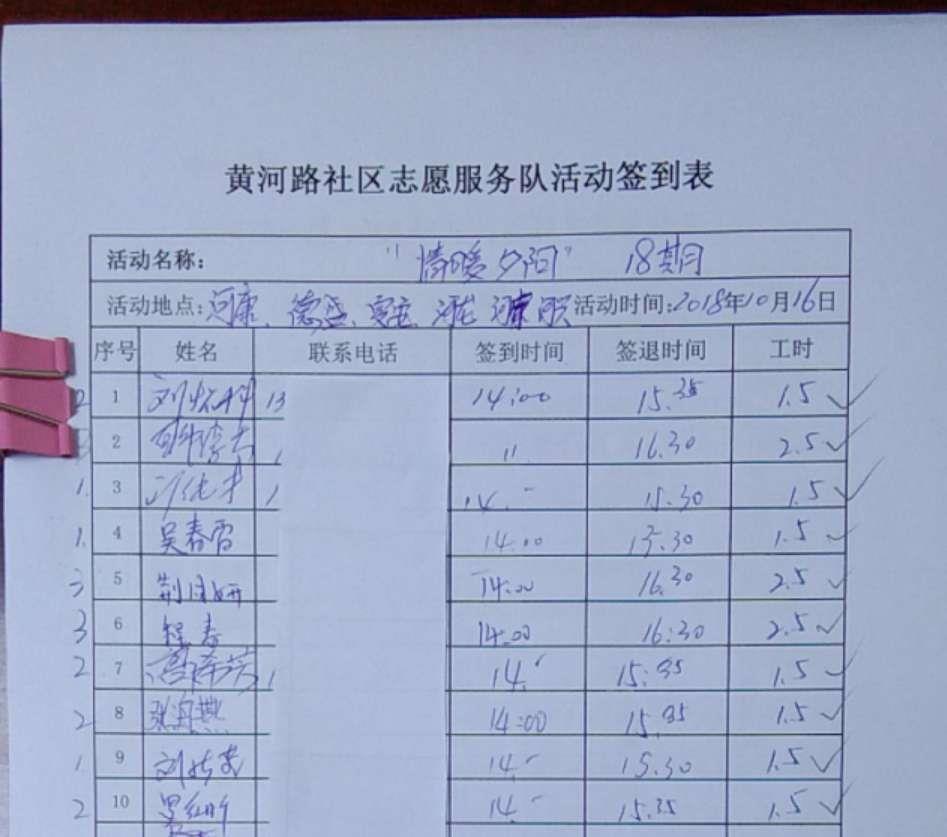 黄河路社区志愿服务队活动签到表
活动名称： "情暖夕阳" 18期
活动地点: 河康、德盛、 活动时间:2018年10月16日
序号 姓名 联系电话 签到时间 签退时间 工时
2 1 13 14:00 15.35 1.5 ✓
2 11 16.30 2.5 ✓
1. 3 14. - 15.30 1.5 ✓
1. 4 吴春雷 14.00 15.30 1.5 ✓
3 5 荆月妍 14:00 16.30 2.5 ✓
3 6 程春 14:00 16:30 2.5 ✓
2 7 14. 15:35 1.5 ✓
2 8 张海燕 14:00 15.35 1.5 ✓
1 9 14. - 15.30 1.5 ✓
2 10 罗红昕 14 - 15.35 1.5 ✓